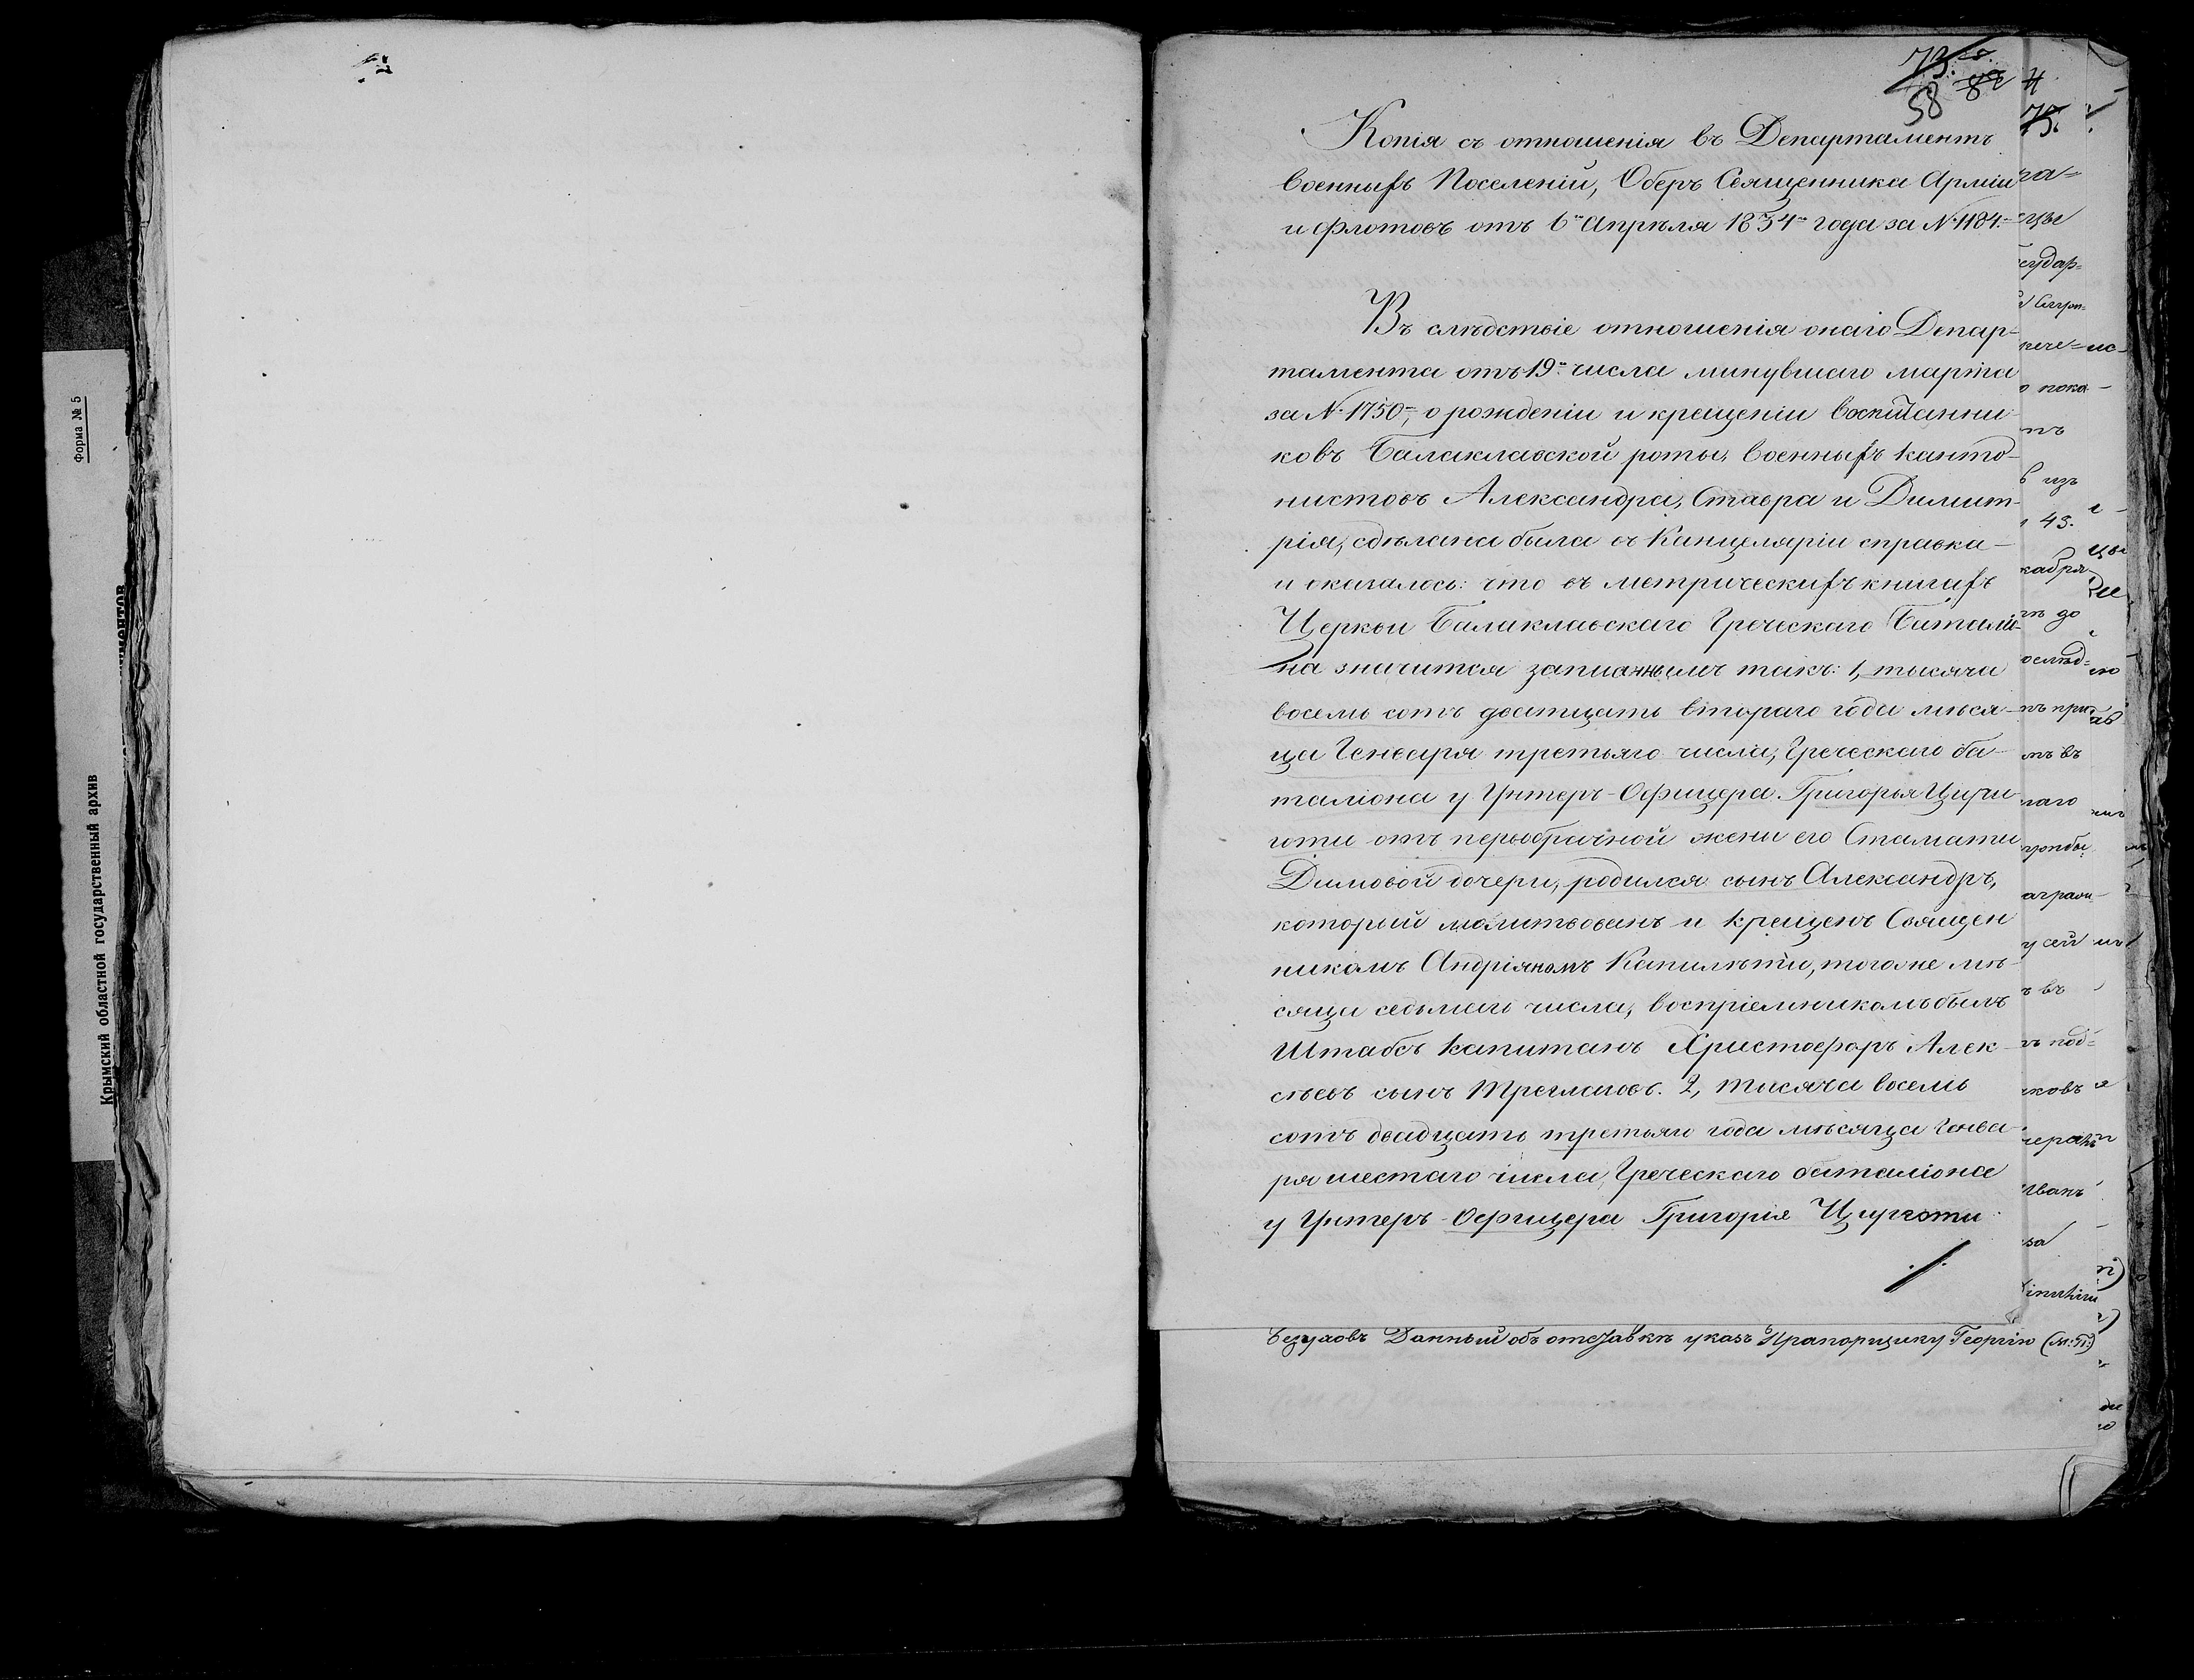 Форма № 5
Крымский областной государственный архив
73.
58
Копія съ отношенія въ Департаментъ
военныхъ Поселеній, Оберъ Священника Арміи
и флотовъ отъ 6го Апрѣля 1834го года за № 1184.
Въ слѣдствіе отношенія онаго Депар-
тамента отъ 19го числа минувшаго марта
за № 1750м, о рожденіи и крещеніи воспитанни-
ковъ Балаклавской роты, военныхъ канто-
нистовъ Александра, Ставра и Димит-
рія, сдѣлана была въ Канцеляріи справка
и оказалось: что въ метрическихъ книгахъ
Церкви Балаклавскаго Греческаго Баталіо-
на значится записаннымъ такъ: 1, тысяча
восемь сотъ дватцать втораго года мѣся-
ца Генваря третьяго числа, Греческаго ба-
таліона у Унтеръ-Офицера Григорья Цири-
готи отъ первобрачной жены его Стамати
Димовой дочери, родился сынъ Александръ,
который молитвованъ и крещенъ Священ
никомъ Андріяномъ Капилѣти, тогоже мѣ-
сяца седьмаго числа, воспріемникомъ былъ
Штабсъ капитанъ Христофоръ Алек-
сѣевъ сынъ 2, тысяча восемь
сотъ двадцать третьяго года мѣсяца генва-
ря шестаго числа, Греческаго баталіона
у Унтеръ-Офицера Григорія Циготи
Данный объ отставкѣ указъ Прапорщику Георгію (М: П:)